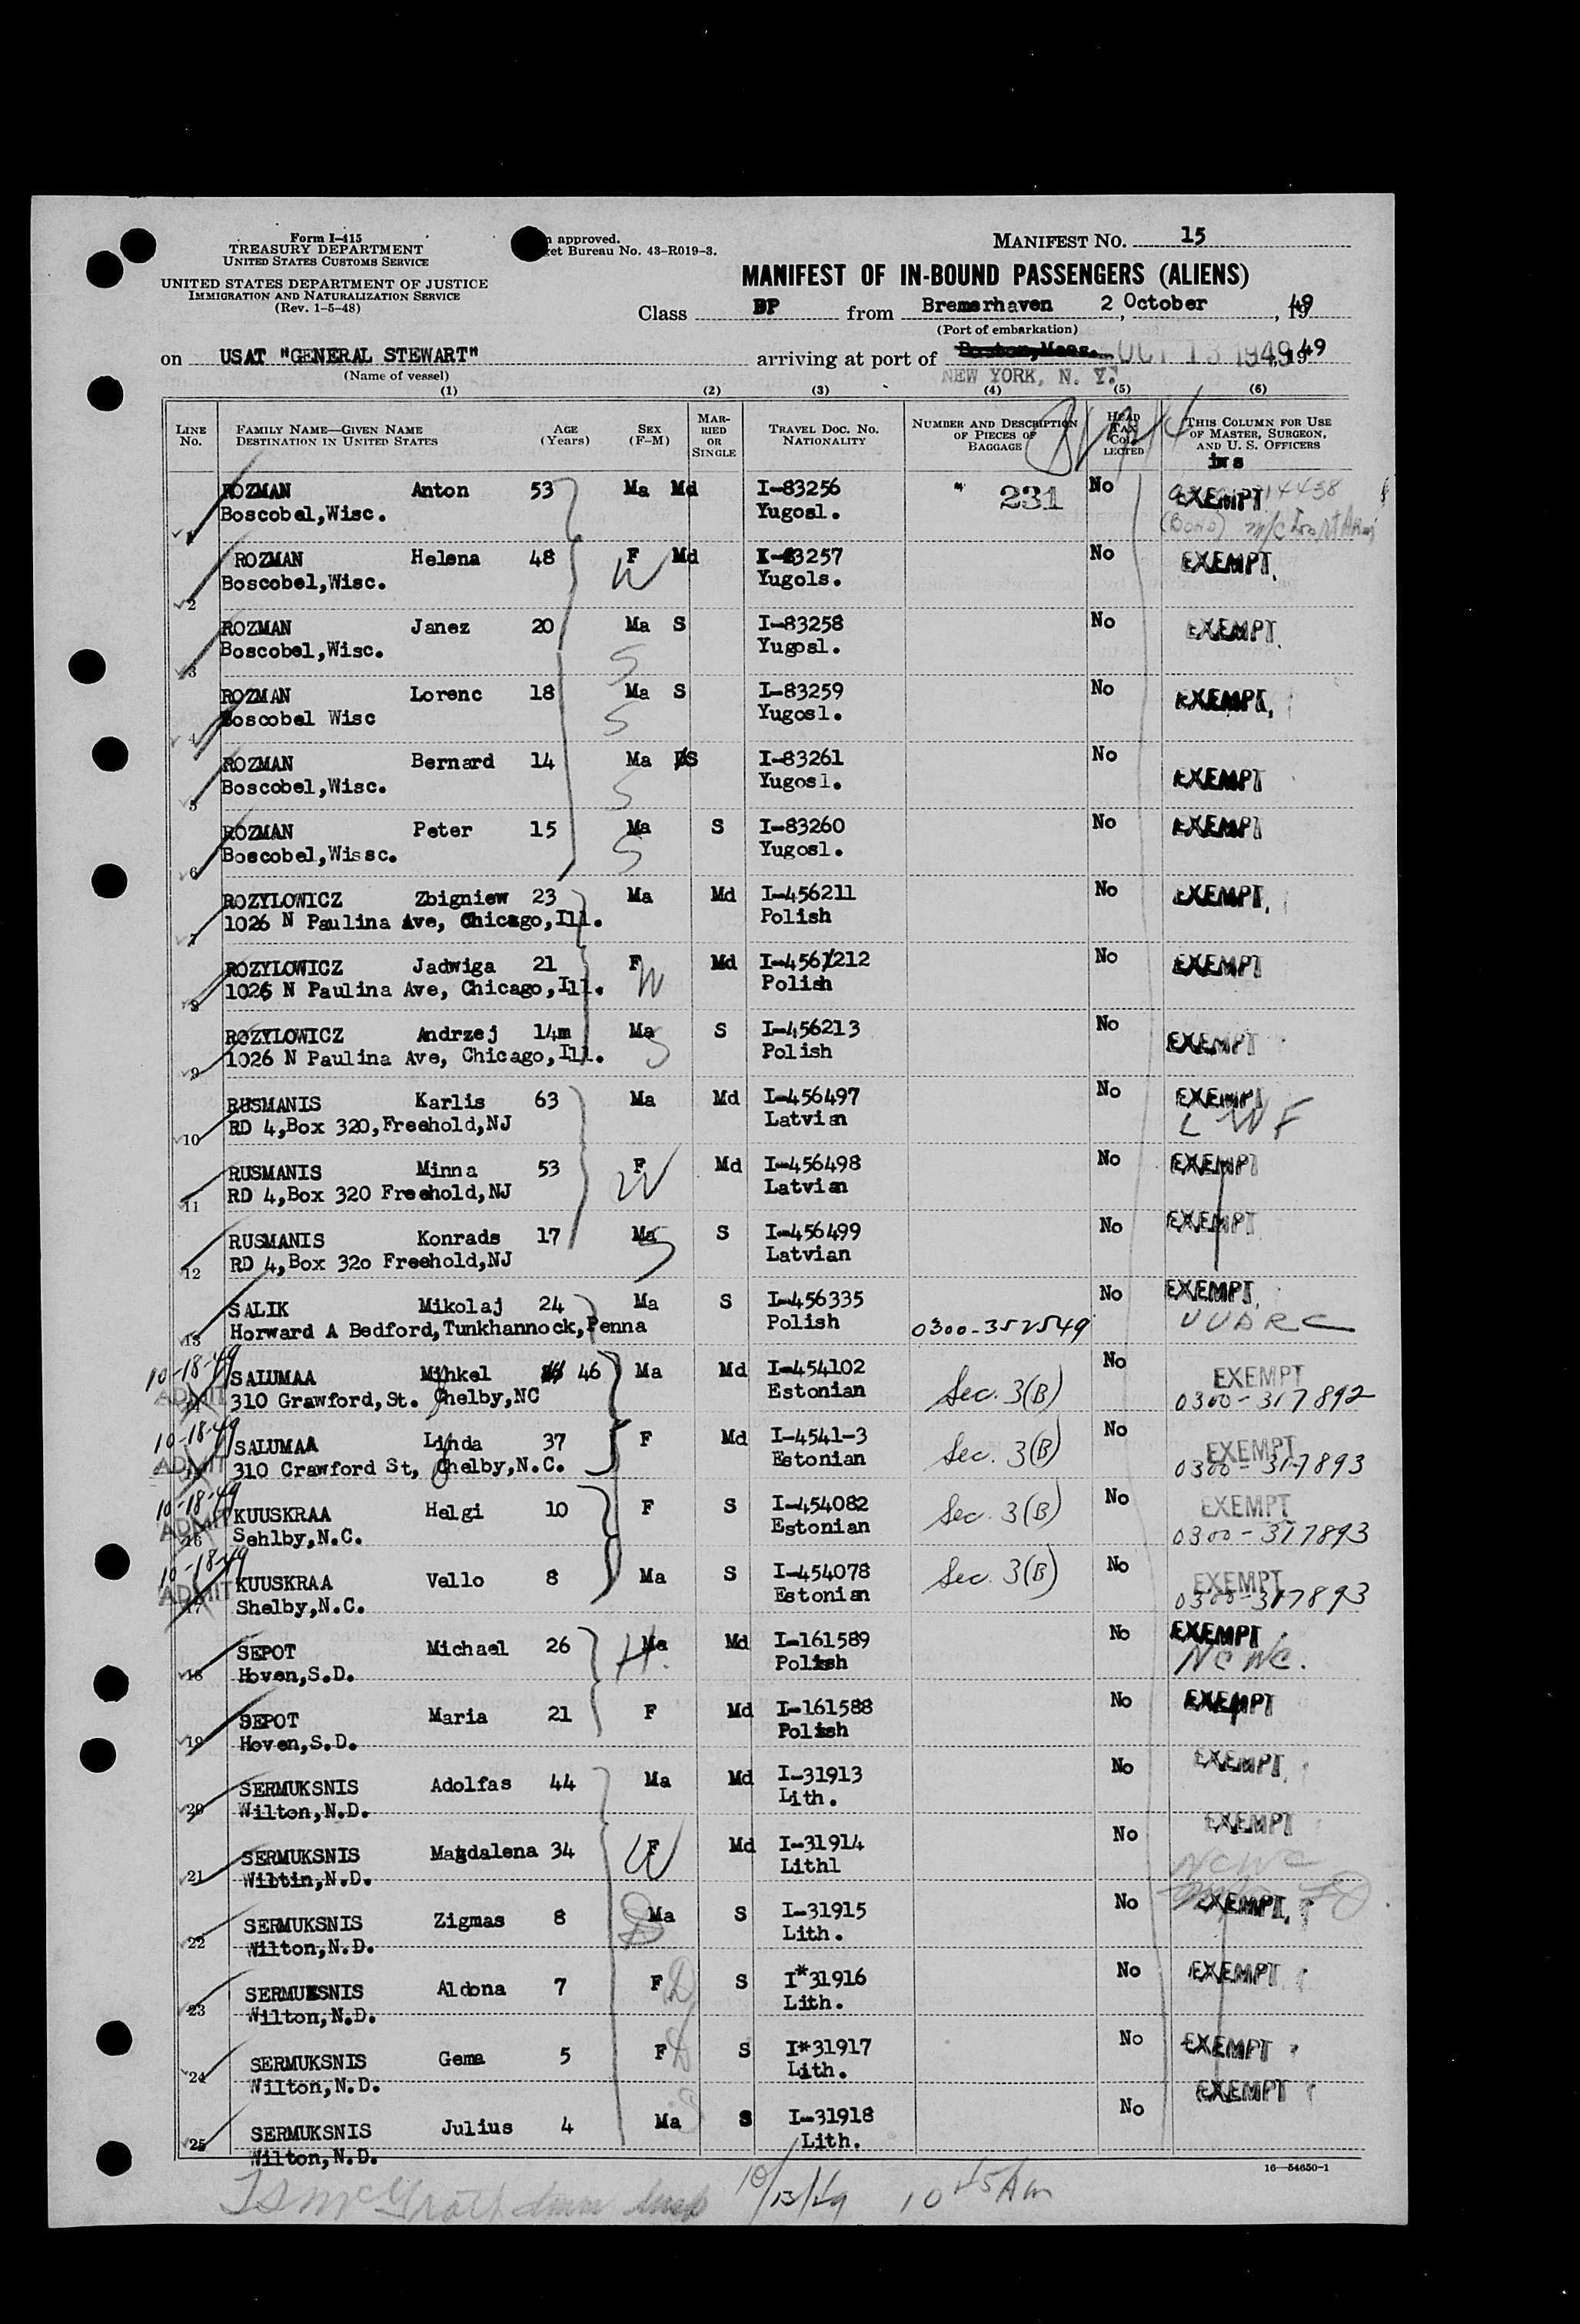 Form I-415
TREASURY DEPARTMENT
UNITED STATES CUSTOMS SERVICE
UNITED STATES DEPARTMENT OF JUSTICE
IMMIGRATION AND NATURALIZATION SERVICE
(Rev. 1-5-48)
approved.
get Bureau No. 43-R019-3.
MANIFEST No. 15
MANIFEST OF IN-BOUND PASSENGERS (ALIENS)
Class DP from Bremerhaven 2 October, 1949
(Port of embarkation)
on USAT "GENERAL STEWART" arriving at port of Boston, Mass. OCT 13 1949, 1949
(Name of vessel) NEW YORK, N. Y.
(1) (2) (3) (4) (5) (6)
LINE No. FAMILY NAME—GIVEN NAME DESTINATION IN UNITED STATES AGE (Years) SEX (F-M) MARRIED OR SINGLE TRAVEL DOC. No. NATIONALITY NUMBER AND DESCRIPTION OF PIECES OF BAGGAGE HEAD TAX COLLECTED THIS COLUMN FOR USE OF MASTER, SURGEON, AND U. S. OFFICERS
ins
1 ROZMAN Anton 53 Ma Md I-83256 231 No EXEMPT
Boscobel,Wisc. Yugosl.
2 ROZMAN Helena 48 F Md I-83257 No EXEMPT
Boscobel,Wisc. W Yugols.
3 ROZMAN Janez 20 Ma S I-83258 No EXEMPT
Boscobel,Wisc. S Yugosl.
4 ROZMAN Lorenc 18 Ma S I-83259 No EXEMPT
Boscobel Wisc S Yugosl.
5 ROZMAN Bernard 14 Ma S I-83261 No EXEMPT
Boscobel,Wisc. S Yugosl.
6 ROZMAN Peter 15 Ma S I-83260 No EXEMPT
Boscobel,Wissc. S Yugosl.
7 ROZYLOWICZ Zbigniew 23 Ma Md I-456211 No EXEMPT
1026 N Paulina Ave, Chicago,Ill. Polish
8 ROZYLOWICZ Jadwiga 21 F Md I-456212 No EXEMPT
1026 N Paulina Ave, Chicago,Ill. W Polish
9 ROZYLOWICZ Andrzej 14m Ma S I-456213 No EXEMPT
1026 N Paulina Ave, Chicago,Ill. S Polish
10 RUSMANIS Karlis 63 Ma Md I-456497 No EXEMPT
RD 4,Box 320,Freehold,NJ Latvian LWF
11 RUSMANIS Minna 53 F Md I-456498 No EXEMPT
RD 4,Box 320 Freehold,NJ W Latvian
12 RUSMANIS Konrads 17 Ma S I-456499 No EXEMPT
RD 4,Box 32o Freehold,NJ S Latvian
13 SALIK Mikolaj 24 Ma S I-456335 No EXEMPT
Horward A Bedford,Tunkhannock,Penna Polish 0300-352549 UUARC
10-18-49 ADMIT 14 SALUMAA Mihkel 46 Ma Md I-454102 Sec. 3(B) No EXEMPT
310 Grawford,St. Shelby,NC Estonian 0300-317892
10-18-49 ADMIT 15 SALUMAA Linda 37 F Md I-4541-3 Sec. 3(B) No EXEMPT
310 Crawford St, Shelby,N.C. Estonian 0300-317893
10-18-49 ADMIT 16 KUUSKRAA Helgi 10 F S I-454082 Sec. 3(B) No EXEMPT
Sehlby,N.C. Estonian 0300-317893
10-18-49 ADMIT 17 KUUSKRAA Vello 8 Ma S I-454078 Sec. 3(B) No EXEMPT
Shelby,N.C. Estonian 0300-317893
18 SEPOT Michael 26 Ma Md I-161589 No EXEMPT
Hoven,S.D. H. Polish NCWC.
19 SEPOT Maria 21 F Md I-161588 No EXEMPT
Hoven,S.D. Polish
20 SERMUKSNIS Adolfas 44 Ma Md I-31913 No EXEMPT
Wilton,N.D. Lith.
21 SERMUKSNIS Magdalena 34 F Md I-31914 No EXEMPT
Wiltin,N.D. W Lithl NCWC
22 SERMUKSNIS Zigmas 8 Ma S I-31915 No EXEMPT
Wilton,N.D. Lith.
23 SERMUKSNIS Aldona 7 F D S I*31916 No EXEMPT
Wilton,N.D. Lith.
24 SERMUKSNIS Gema 5 F S I*31917 No EXEMPT
Wilton,N.D. Lith.
25 SERMUKSNIS Julius 4 Ma S I-31918 No EXEMPT
Wilton,N.D. Lith.
16-54650-1
10/13/49 10 45 Am